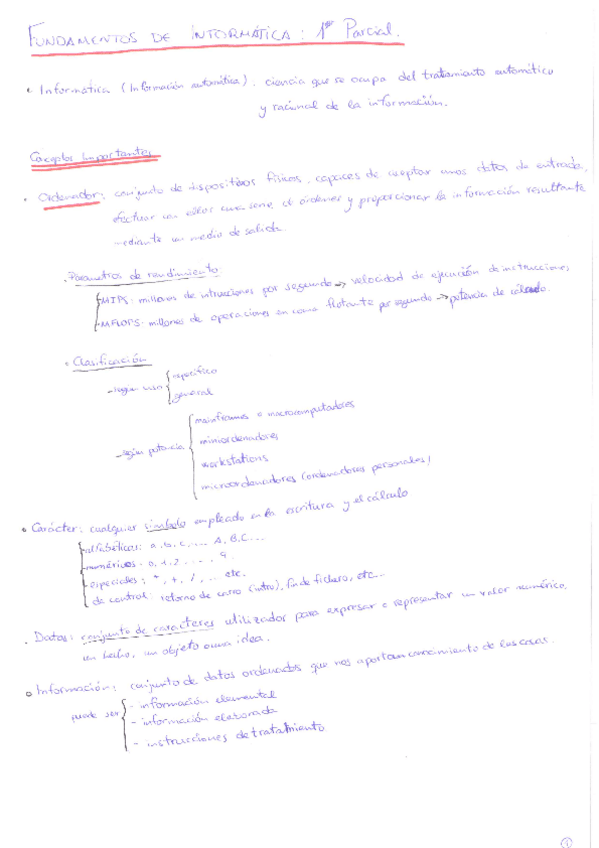 FUNDAMENTOS DE INFORMÁTICA: 1er Parcial.
• Informática (Información automática): ciencia que se ocupa del tratamiento automático
y racional de la información.
Conceptos Importantes
• Ordenador: conjunto de dispositivos físicos, capaces de aceptar unos datos de entrada,
efectuar con ellos una serie de órdenes y proporcionar la información resultante
mediante un medio de salida.
• Parámetros de rendimiento
MIPS: millones de intrucciones por segundo → velocidad de ejecución de instrucciones
MFLOPS: millones de operaciones en coma flotante por segundo → potencia de cálculo.
• Clasificación
- según uso
específico
general
- según potencia
mainframes o macrocomputadores
miniordenadores
workstations
microordenadores (ordenadores personales)
• Carácter: cualquier símbolo empleado en la escritura y el cálculo
alfabéticos: a, b, c, ... A, B, C...
numéricos: 0, 1, 2 .... 9
especiales: *, +, /, ... etc.
de control: retorno de carro (intro), fin de fichero, etc...
. Datos: conjunto de caracteres utilizador para expresar o representar un valor numérico,
un hecho, un objeto o una idea.
• Información: conjunto de datos ordenados que nos aportan conocimiento de las cosas.
puede ser
- información elemental
- información elaborada
- instrucciones de tratamiento
1